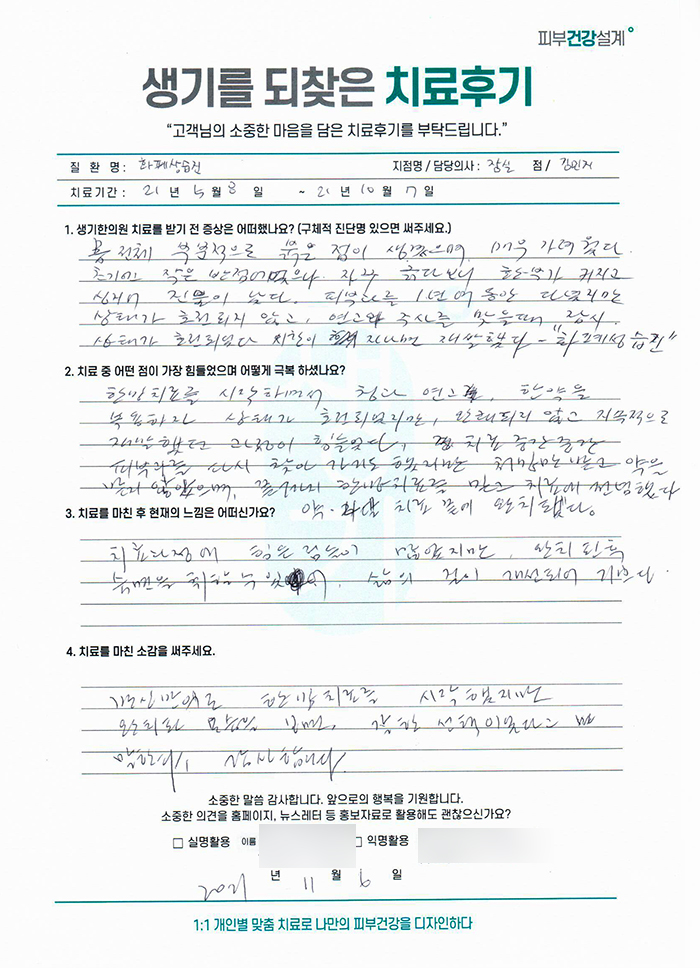 피부건강설계
생기를 되찾은 치료후기
“고객님의 소중한 마음을 담은 치료후기를 부탁드립니다.”
질 환 명 : 화폐상습진 지점명 / 담당의사 : 잠실 점 /
치료기간 : 21 년 5 월 8 일 ~ 21 년 10 월 7 일
1. 생기한의원 치료를 받기 전 증상은 어떠했나요? (구체적 진단명 있으면 써주세요.)
몸 전체 부분적으로 붉은 점이 생겼으며, 매우 가려웠다.
초기엔 작은 반점이었으나 자꾸 긁다보니 환부가 커지고
심지어 진물이 났다. 피부과를 1년여 동안 다녔지만
상태가 호전되지 않고, 연고와 주사를 맞을때 잠시
상태가 호전되었다 시간이 지나면 재발했다 - "화폐성 습진"
2. 치료 중 어떤 점이 가장 힘들었으며 어떻게 극복 하셨나요?
한방치료를 시작하면서 침과 연고, 한약을
복용하자 상태가 호전되었지만, 완쾌되지 않고 지속적으로
재발했던 그점이 힘들었다, 치료 중간중간
피부과를 다시 찾아 가기도 했지만 처방만 받고 약을
먹지 않았으며, 끝까지 한방치료를 믿고 치료에 전념했다
약 치료 끝에 완치됐다.
3. 치료를 마친 후 현재의 느낌은 어떠신가요?
치료과정에 힘든 점들이 많았지만, 완치된 후
숙면을 취할 수 있어, 삶의 질이 개선되어 기쁘다.
4. 치료를 마친 소감을 써주세요.
반신반의로 한방치료를 시작했지만
완치된 모습을 보면, 잘한 선택이었다고
말한다, 감사합니다.
소중한 말씀 감사합니다. 앞으로의 행복을 기원합니다.
소중한 의견을 홈페이지, 뉴스레터 등 홍보자료로 활용해도 괜찮으신가요?
실명활용 이름 익명활용
2021 년 11 월 6 일
1:1 개인별 맞춤 치료로 나만의 피부건강을 디자인하다